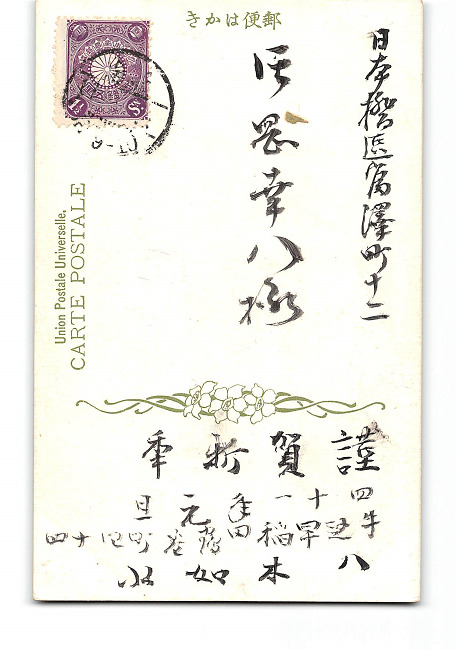 郵便はかき
日本橋區富澤町十二
幸八様
Union Postale Universelle.
CARTE POSTALE
謹賀新年
四十一年元旦
牛込早稲田鶴巻町四十四
八木如水